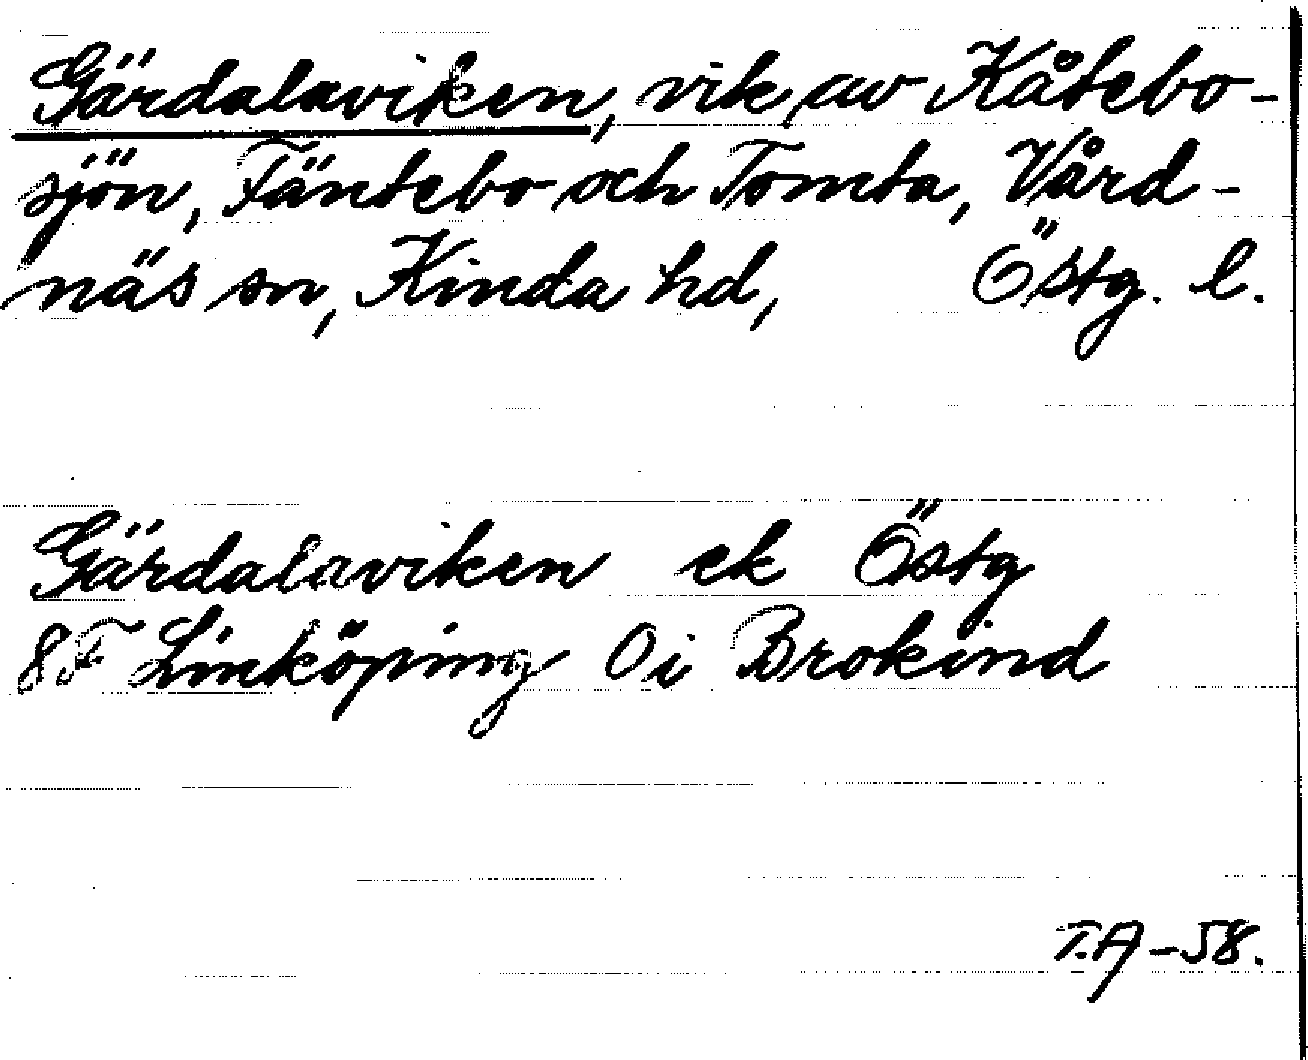 Gärdalaviken, vik av Kåtebo-
sjön, Fäntebo och Tomta, Vård-
näs sn, Kinda hd, Östg. l.
Gärdalaviken ek Östg
8F Linköping 0i Brokind
T.A -58.